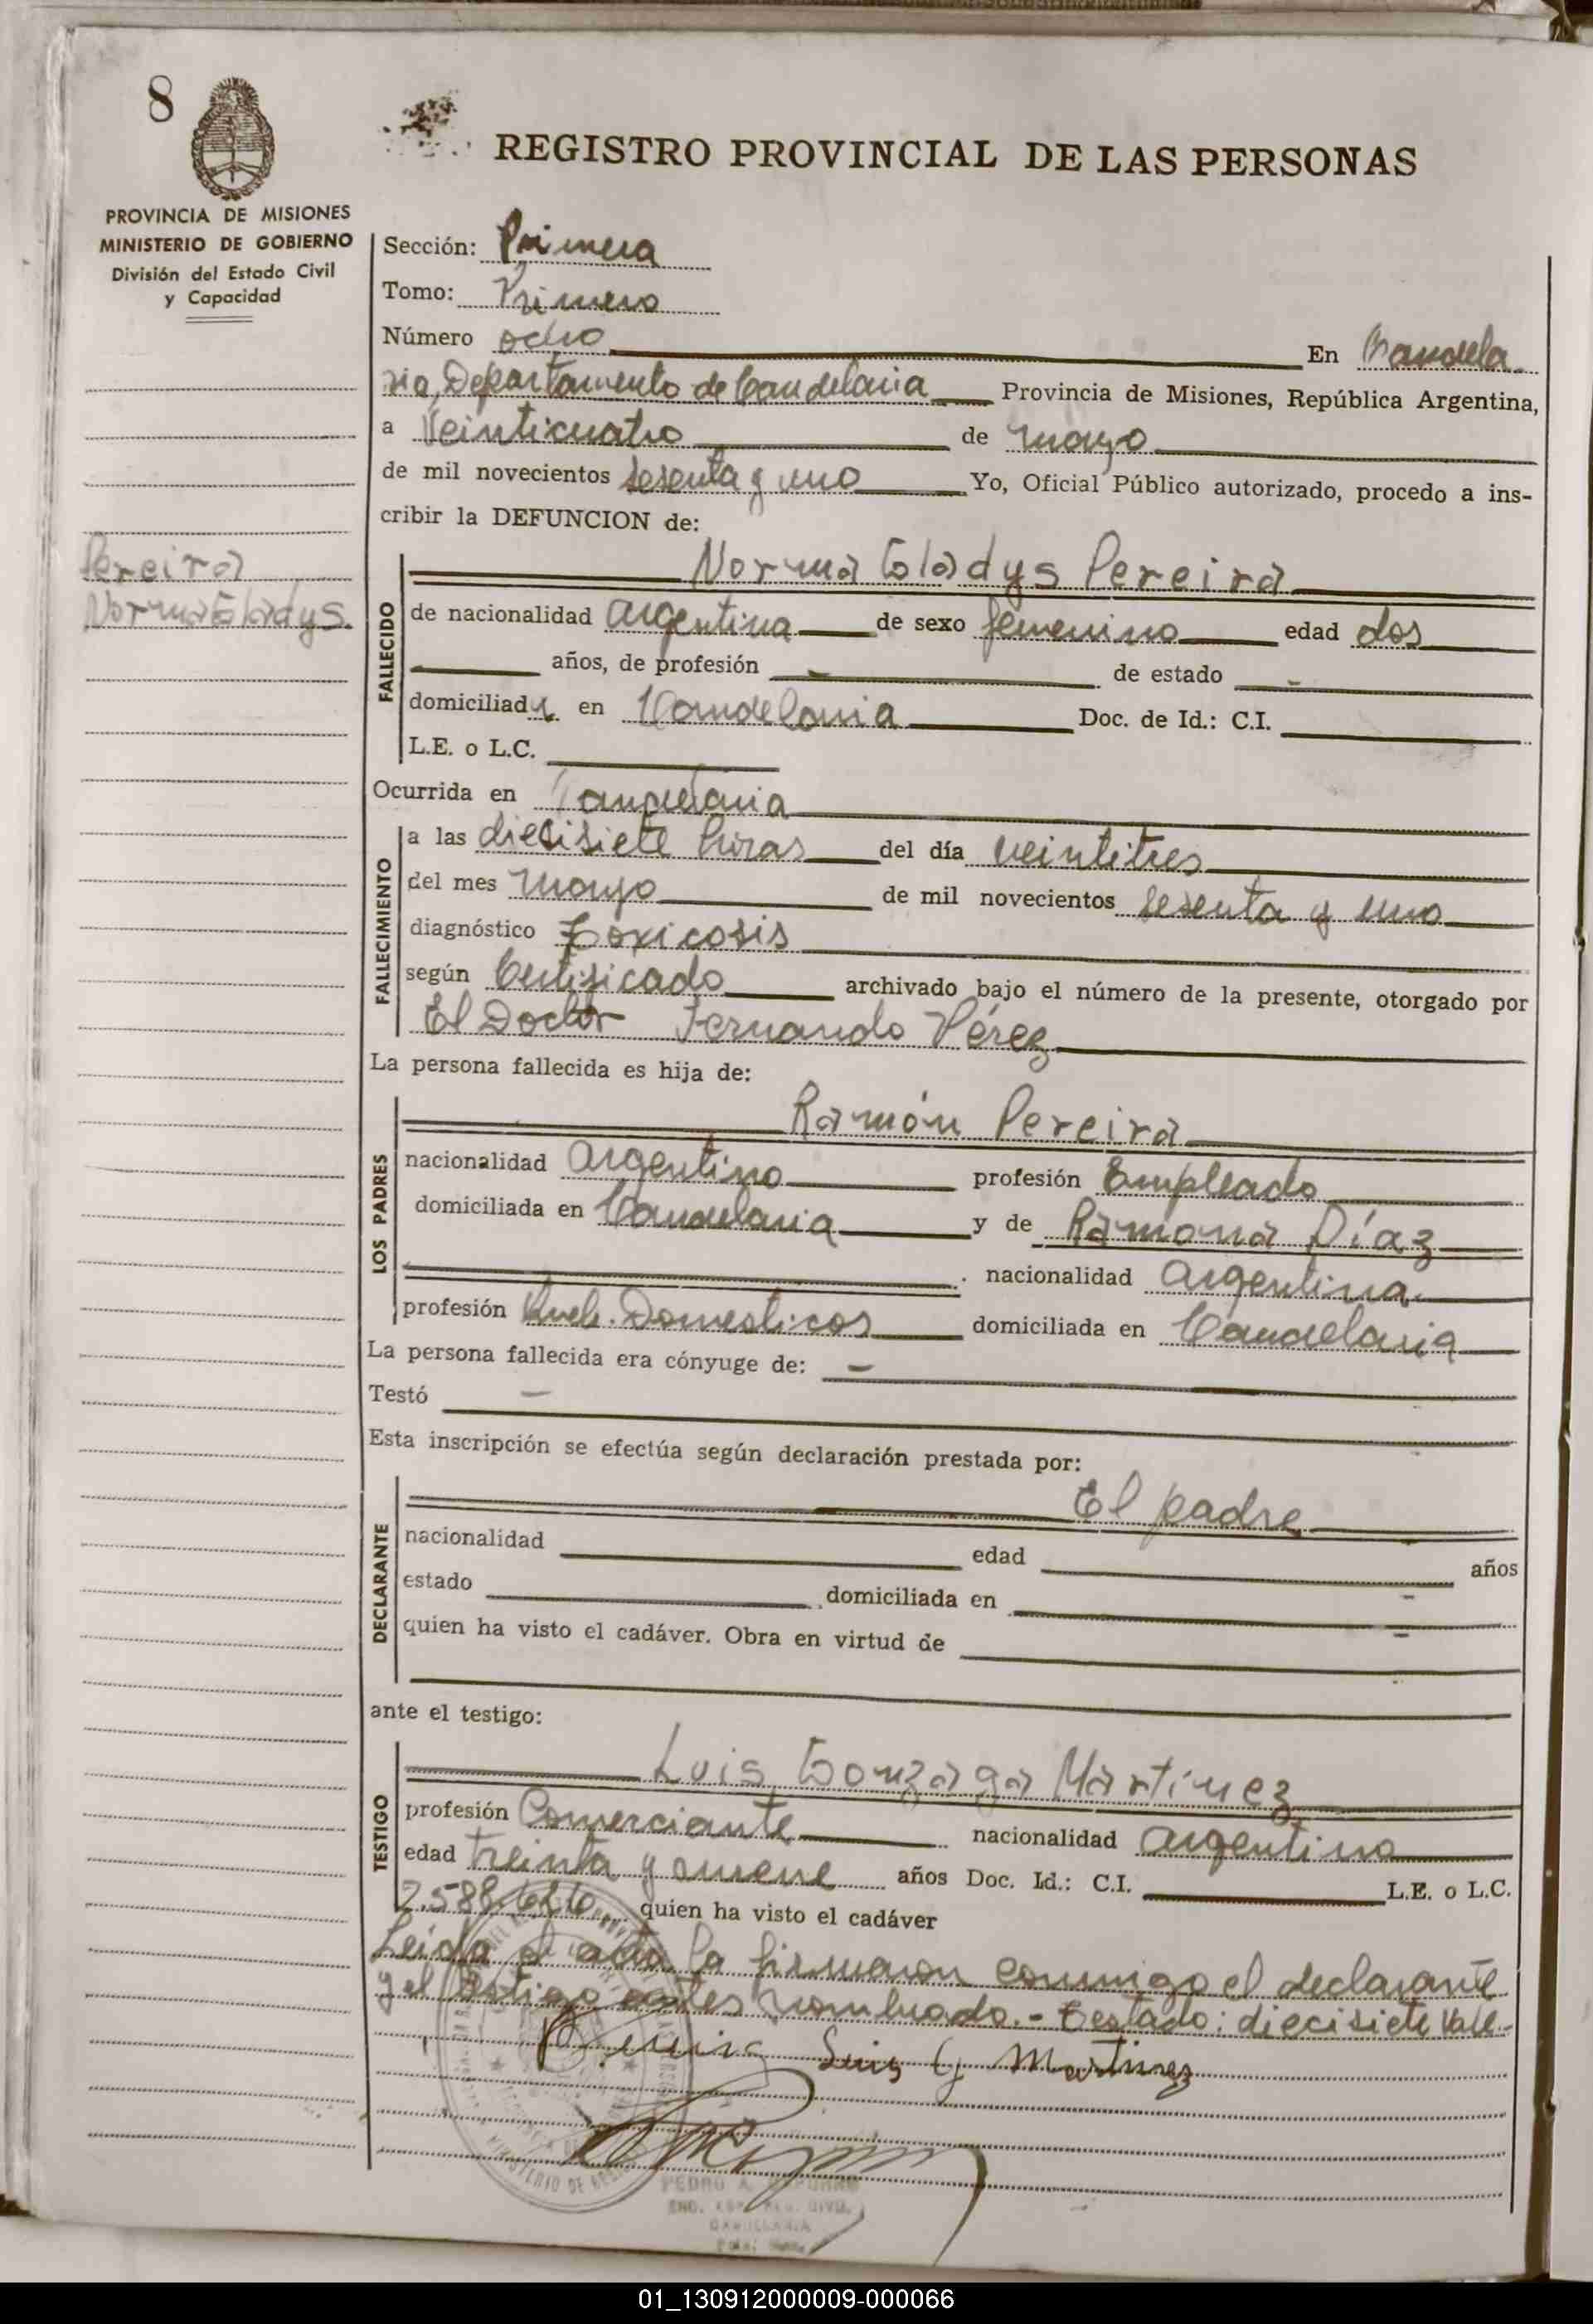 8
REGISTRO PROVINCIAL DE LAS PERSONAS
PROVINCIA DE MISIONES
MINISTERIO DE GOBIERNO
División del Estado Civil
y Capacidad
Pereira
Norma Gladys.
Sección: Primera
Tomo: Primero
Número ocho En Candela
ria, Departamento de Candelaria Provincia de Misiones, República Argentina,
a Veinticuatro de mayo
de mil novecientos sesenta y uno Yo, Oficial Público autorizado, procedo a ins-
cribir la DEFUNCION de:
FALLECIDO
Norma Gladys Pereira
de nacionalidad argentina de sexo femenino edad dos
años, de profesión - de estado -
domiciliada en Candelaria Doc. de Id.: C.I.
L.E. o L.C.
Ocurrida en Candelaria
FALLECIMIENTO
a las diecisiete horas del día veintitres
del mes mayo de mil novecientos sesenta y uno
diagnóstico Toxicosis
según Certificado archivado bajo el número de la presente, otorgado por
El Doctor Fernando Pérez
La persona fallecida es hija de:
LOS PADRES
Ramón Pereira
nacionalidad argentino profesión Empleado
domiciliada en Candelaria y de Ramona Díaz
nacionalidad argentina
profesión Queh. Domesticos domiciliada en Candelaria
La persona fallecida era cónyuge de: -
Testó -
Esta inscripción se efectúa según declaración prestada por:
DECLARANTE
El padre
nacionalidad edad años
estado domiciliada en -
quien ha visto el cadáver. Obra en virtud de -
ante el testigo:
TESTIGO
Luis Gonzaga Martínez
profesión Comerciante nacionalidad argentino
edad treinta y nueve años Doc. Id.: C.I. L.E. o L.C.
2.588.626 quien ha visto el cadáver
Leida el acta la firmaron conmigo el declarante
y el testigo antes nombrado.- Testado: diecisiete Vale.-
Luis G Martinez
PEDRO A.
CANDELARIA
01_130912000009-000066